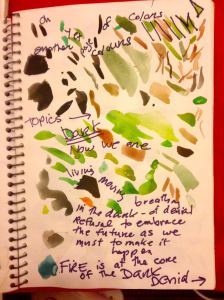 Oh
of Colours
another
Colours
TOPICS →
Dark
Now we are
living moving breathing
in the dark - of denial
Refusal to embrace
the future as we
must to make it
happen
FIRE is at the core
of the DARK
Denial →